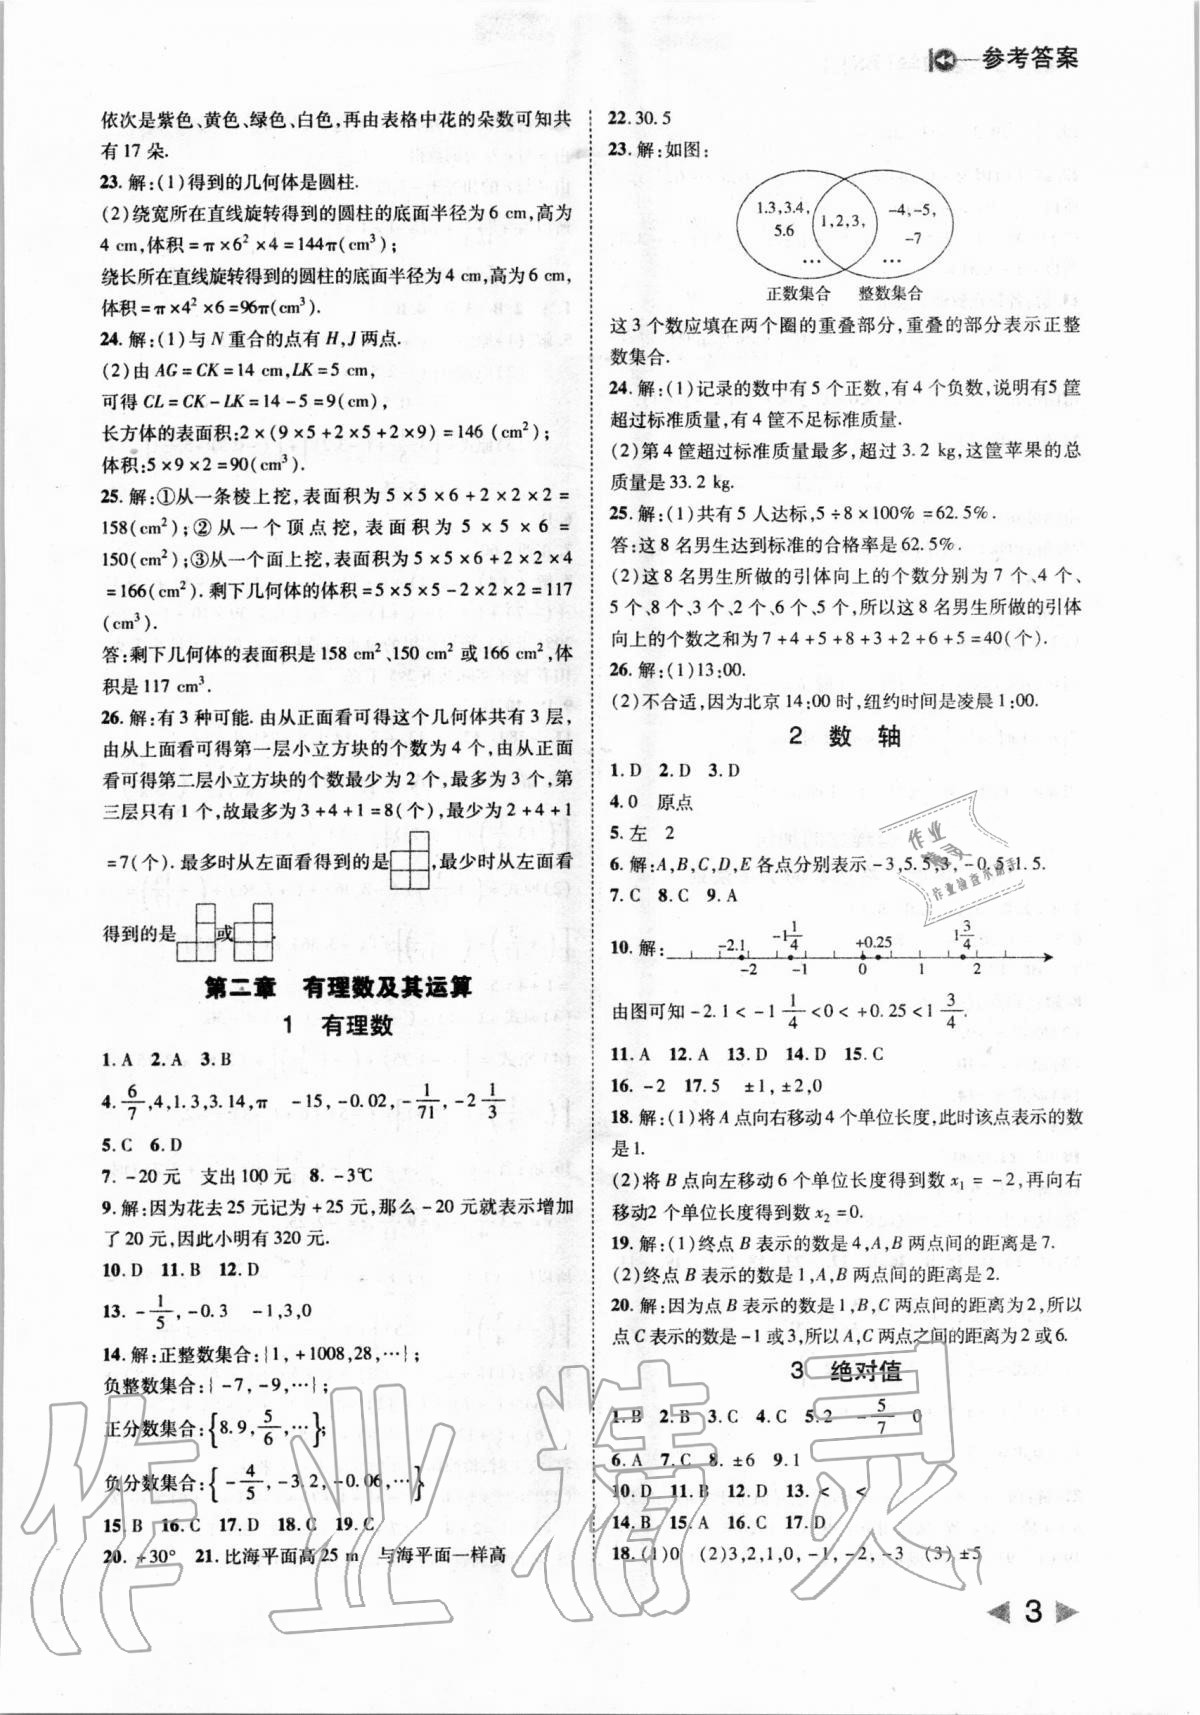 参考答案
依次是紫色、黄色、绿色、白色,再由表格中花的朵数可知共
有17朵.
23. 解:(1)得到的几何体是圆柱.
(2)绕宽所在直线旋转得到的圆柱的底面半径为6 cm,高为
4 cm,体积=π×6²×4=144π(cm³);
绕长所在直线旋转得到的圆柱的底面半径为4 cm,高为6 cm,
体积=π×4²×6=96π(cm³).
24. 解:(1)与N重合的点有H,J两点.
(2)由AG=CK=14 cm,LK=5 cm,
可得CL=CK-LK=14-5=9(cm),
长方体的表面积:2×(9×5+2×5+2×9)=146 (cm²);
体积:5×9×2=90(cm³).
25. 解:①从一条棱上挖,表面积为5×5×6+2×2×2=
158(cm²);②从一个顶点挖,表面积为5×5×6=
150(cm²);③从一个面上挖,表面积为5×5×6+2×2×4
=166(cm²). 剩下几何体的体积=5×5×5-2×2×2=117
(cm³).
答:剩下几何体的表面积是158 cm²、150 cm²或166 cm²,体
积是117 cm³.
26. 解:有3种可能. 由从正面看可得这个几何体共有3层,
由从上面看可得第一层小立方块的个数为4个,由从正面
看可得第二层小立方块的个数最少为2个,最多为3个,第
三层只有1个,故最多为3+4+1=8(个),最少为2+4+1
=7(个). 最多时从左面看得到的是,最少时从左面看
得到的是或.
第二章 有理数及其运算
1 有理数
1. A 2. A 3. B
4. 6/7,4,1.3,3.14,π -15,-0.02,-1/71,-2 1/3
5. C 6. D
7. -20元 支出100元 8. -3℃
9. 解:因为花去25元记为+25元,那么-20元就表示增加
了20元,因此小明有320元.
10. D 11. B 12. D
13. -1/5,-0.3 -1,3,0
14. 解:正整数集合:{1,+1008,28,…};
负整数集合:{-7,-9,…};
正分数集合:{8.9,5/6,…};
负分数集合:{-4/5,-3.2,-0.06,…}
15. B 16. C 17. D 18. C 19. C
20. +30° 21. 比海平面高25 m 与海平面一样高
22. 30.5
23. 解:如图:
1.3,3.4,
5.6
…
1,2,3,
-4,-5,
-7
…
正数集合 整数集合
这3个数应填在两个圈的重叠部分,重叠的部分表示正整
数集合.
24. 解:(1)记录的数中有5个正数,有4个负数,说明有5筐
超过标准质量,有4筐不足标准质量.
(2)第4筐超过标准质量最多,超过3.2 kg,这筐苹果的总
质量是33.2 kg.
25. 解:(1)共有5人达标,5÷8×100%=62.5%.
答:这8名男生达到标准的合格率是62.5%.
(2)这8名男生所做的引体向上的个数分别为7个、4个、
5个、8个、3个、2个、6个、5个,所以这8名男生所做的引体
向上的个数之和为7+4+5+8+3+2+6+5=40(个).
26. 解:(1)13:00.
(2)不合适,因为北京14:00时,纽约时间是凌晨1:00.
2 数 轴
1. D 2. D 3. D
4. 0 原点
5. 左 2
6. 解:A,B,C,D,E各点分别表示-3,5.5,3,-0.5,1.5.
7. C 8. C 9. A
10. 解: -2.1 -1 1/4 +0.25 1 3/4
-2 -1 0 1 2
由图可知-2.1<-1 1/4<0<+0.25<1 3/4.
11. A 12. A 13. D 14. D 15. C
16. -2 17. 5 ±1,±2,0
18. 解:(1)将A点向右移动4个单位长度,此时该点表示的数
是1.
(2)将B点向左移动6个单位长度得到数x₁=-2,再向右
移动2个单位长度得到数x₂=0.
19. 解:(1)终点B表示的数是4,A,B两点间的距离是7.
(2)终点B表示的数是1,A,B两点间的距离是2.
20. 解:因为点B表示的数是1,B,C两点间的距离为2,所以
点C表示的数是-1或3,所以A,C两点之间的距离为2或6.
3 绝对值
1. B 2. B 3. C 4. C 5. 2 -5/7 0
6. A 7. C 8. ±6 9. 1
10. D 11. B 12. D 13. < <
14. B 15. A 16. C 17. D
18. (1)0 (2)3,2,1,0,-1,-2,-3 (3)±5
3
作业精灵